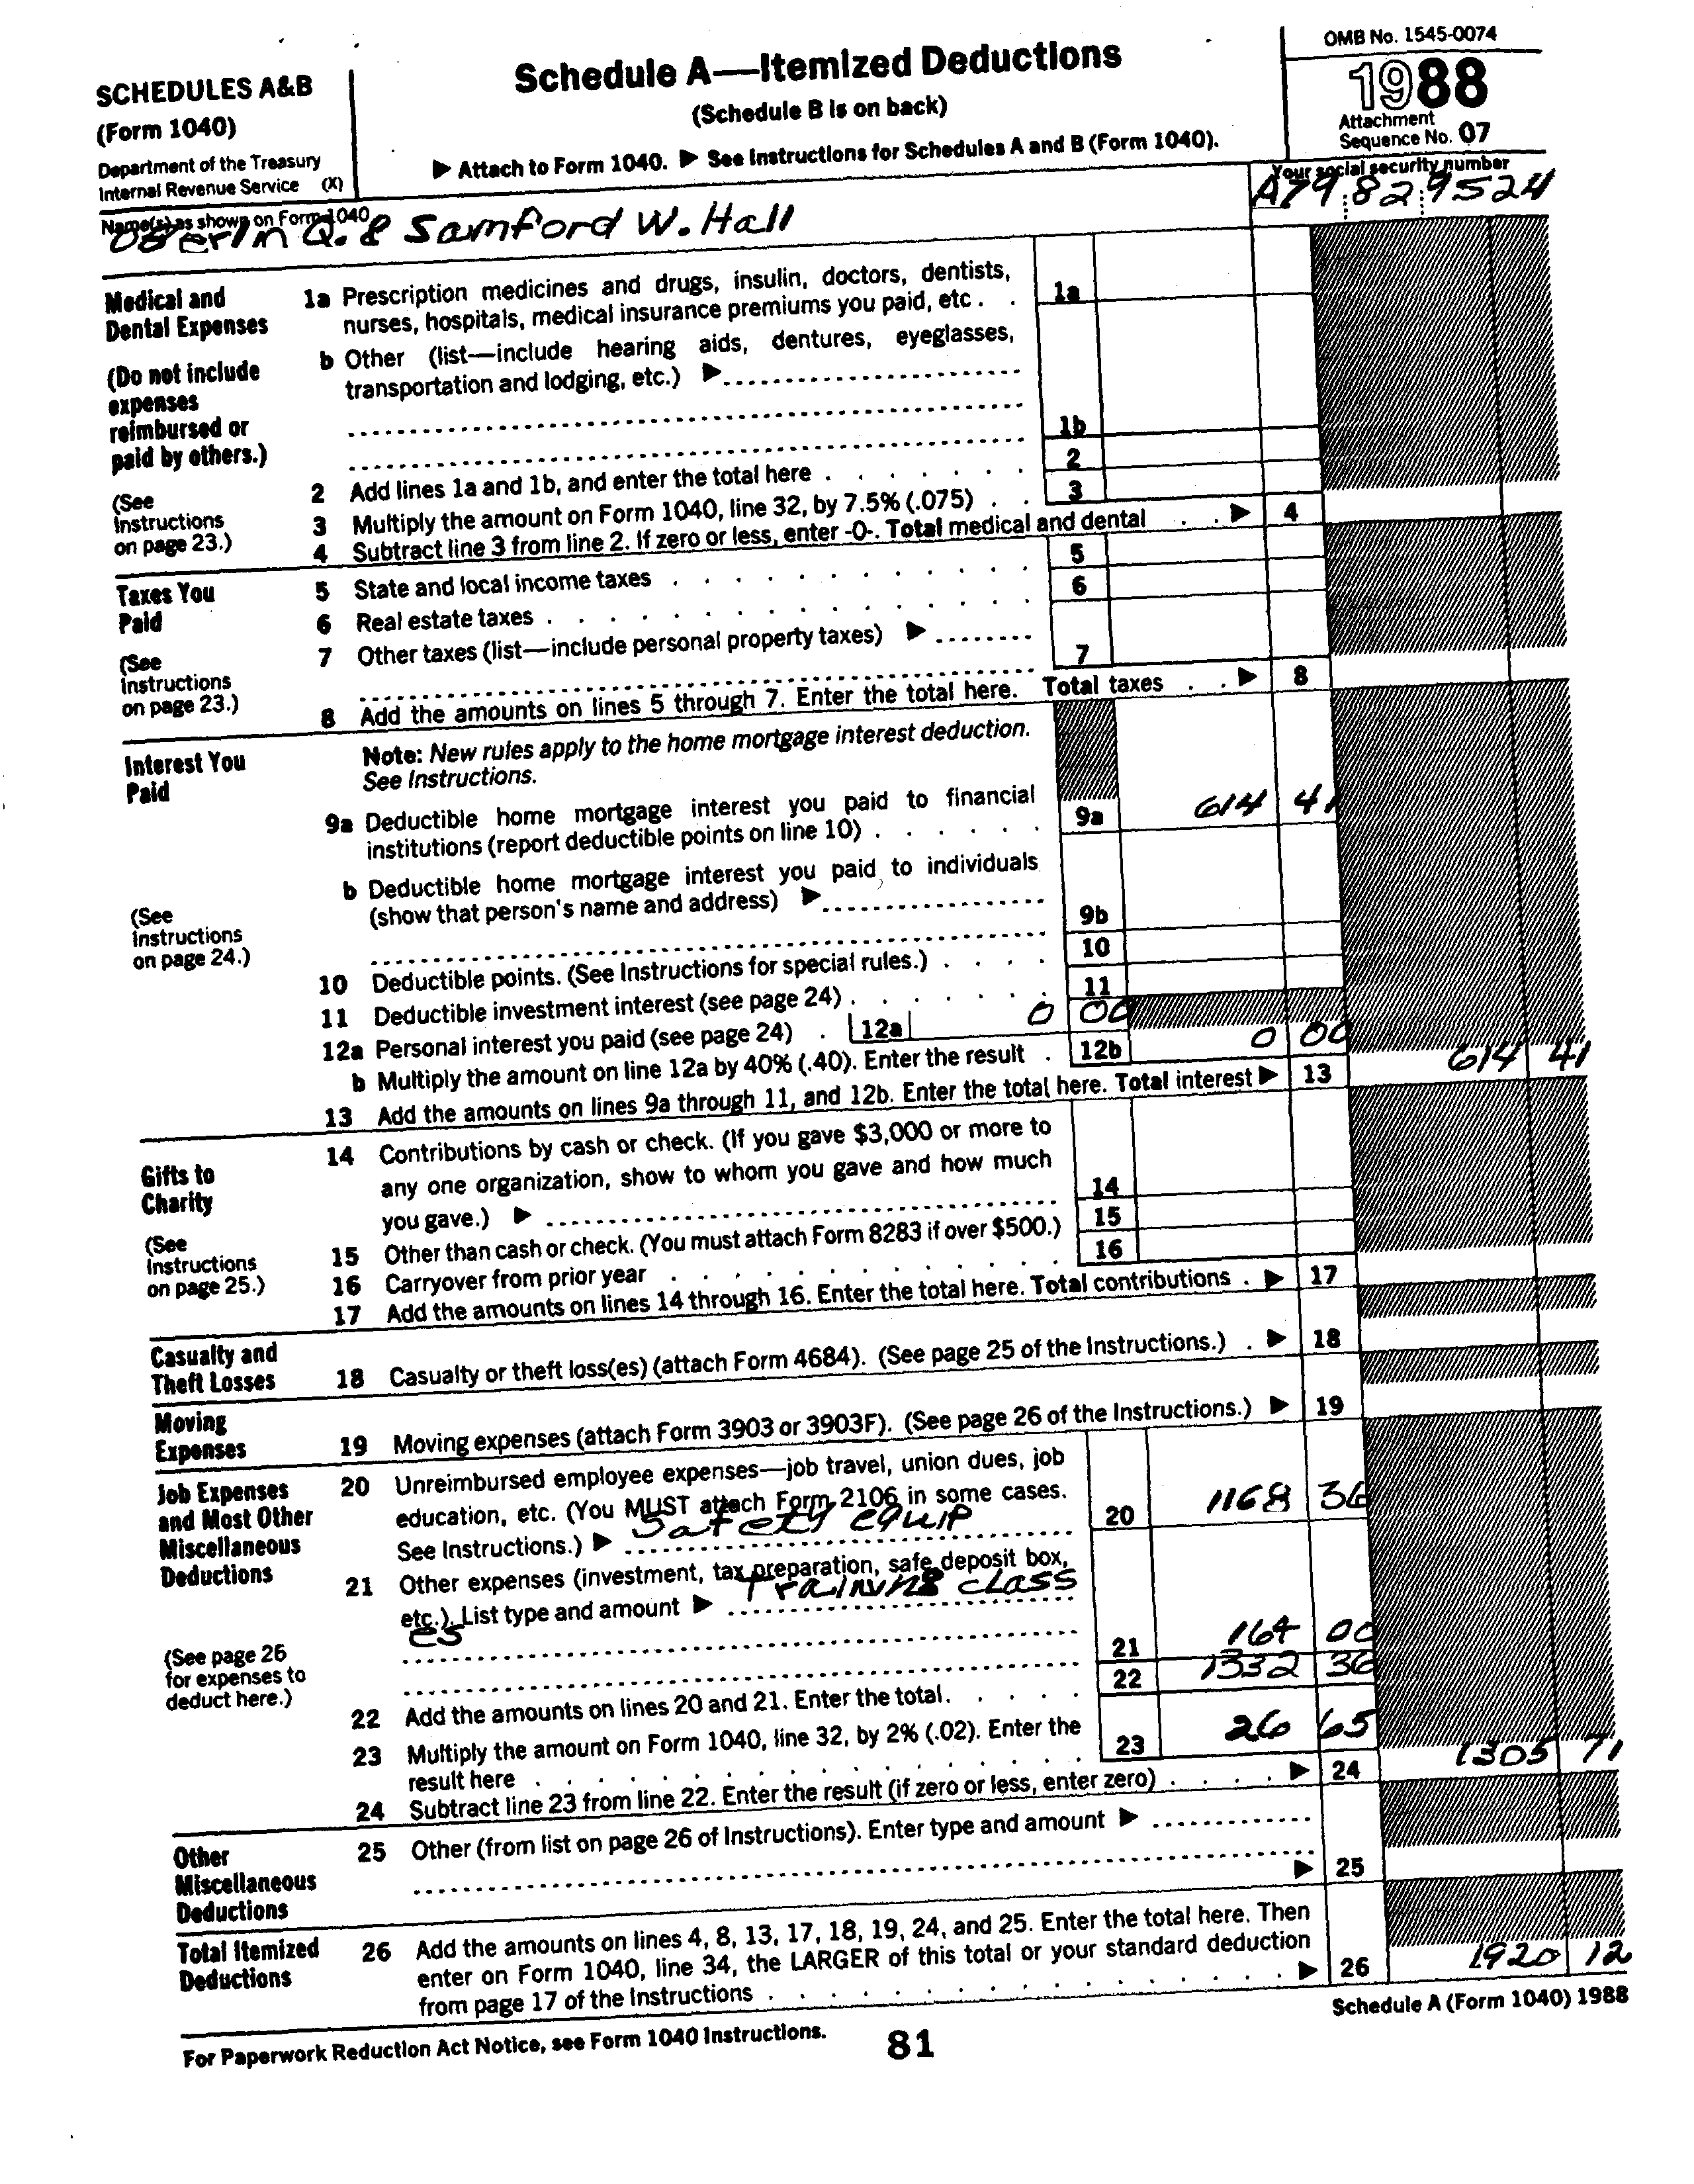 SCHEDULES A&B
(Form 1040)
Department of the Treasury
Internal Revenue Service (X)
Schedule A—Itemized Deductions
(Schedule B is on back)
▶ Attach to Form 1040. ▶ See Instructions for Schedules A and B (Form 1040).
OMB No. 1545-0074
1988
Attachment
Sequence No. 07
Name(s) as shown on Form 1040
Oberlin Q. & Samford W. Hall
Your social security number
A79 82 9524
Medical and
Dental Expenses
(Do not include
expenses
reimbursed or
paid by others.)
(See
Instructions
on page 23.)
1a Prescription medicines and drugs, insulin, doctors, dentists,
nurses, hospitals, medical insurance premiums you paid, etc . . 1a
b Other (list—include hearing aids, dentures, eyeglasses,
transportation and lodging, etc.) ▶
1b
2 Add lines 1a and 1b, and enter the total here . . . . . . . 2
3 Multiply the amount on Form 1040, line 32, by 7.5% (.075) . . 3
4 Subtract line 3 from line 2. If zero or less, enter -0-. Total medical and dental . . ▶ 4
Taxes You
Paid
(See
Instructions
on page 23.)
5 State and local income taxes . . . . . . . . . . . . 5
6 Real estate taxes . . . . . . . . . . . . . . . 6
7 Other taxes (list—include personal property taxes) ▶
7
8 Add the amounts on lines 5 through 7. Enter the total here. Total taxes . . ▶ 8
Interest You
Paid
(See
Instructions
on page 24.)
Note: New rules apply to the home mortgage interest deduction.
See Instructions.
9a Deductible home mortgage interest you paid to financial
institutions (report deductible points on line 10) . . . . . . 9a 614 41
b Deductible home mortgage interest you paid to individuals
(show that person's name and address) ▶
9b
10 Deductible points. (See Instructions for special rules.) . . . . 10
11 Deductible investment interest (see page 24) . . . . . . . 11
12a Personal interest you paid (see page 24) . 12a 0 00
b Multiply the amount on line 12a by 40% (.40). Enter the result . 12b 0 00
13 Add the amounts on lines 9a through 11, and 12b. Enter the total here. Total interest ▶ 13 614 41
Gifts to
Charity
(See
Instructions
on page 25.)
14 Contributions by cash or check. (If you gave $3,000 or more to
any one organization, show to whom you gave and how much
you gave.) ▶ 14
15 Other than cash or check. (You must attach Form 8283 if over $500.) 15
16 Carryover from prior year . . . . . . . . . . . . . 16
17 Add the amounts on lines 14 through 16. Enter the total here. Total contributions . ▶ 17
Casualty and
Theft Losses
18 Casualty or theft loss(es) (attach Form 4684). (See page 25 of the Instructions.) . ▶ 18
Moving
Expenses
19 Moving expenses (attach Form 3903 or 3903F). (See page 26 of the Instructions.) ▶ 19
Job Expenses
and Most Other
Miscellaneous
Deductions
(See page 26
for expenses to
deduct here.)
20 Unreimbursed employee expenses—job travel, union dues, job
education, etc. (You MUST attach Form 2106 in some cases.
See Instructions.) ▶ Safety equip 20 1168 36
21 Other expenses (investment, tax preparation, safe deposit box,
etc.). List type and amount ▶ Training class
es
21 164 00
22 Add the amounts on lines 20 and 21. Enter the total. . . . . 22 1332 36
23 Multiply the amount on Form 1040, line 32, by 2% (.02). Enter the
result here . . . . . . . . . . . . . . . . 23 26 65
24 Subtract line 23 from line 22. Enter the result (if zero or less, enter zero) . . . . ▶ 24 1305 71
Other
Miscellaneous
Deductions
25 Other (from list on page 26 of Instructions). Enter type and amount ▶
▶ 25
Total Itemized
Deductions
26 Add the amounts on lines 4, 8, 13, 17, 18, 19, 24, and 25. Enter the total here. Then
enter on Form 1040, line 34, the LARGER of this total or your standard deduction
from page 17 of the Instructions . . . . . . . . . . . . . ▶ 26 1920 12
For Paperwork Reduction Act Notice, see Form 1040 Instructions.
81
Schedule A (Form 1040) 1988